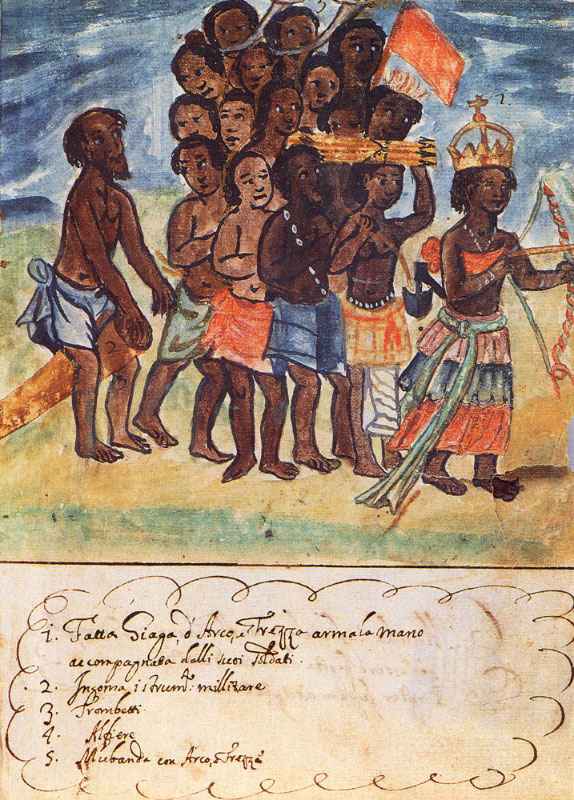 3
1.
2
1. Fatta Giaga, d'Arco, e Frezza armala mano
accompagnata dalli suoi soldati.
2. Ingoma istrum.to millitare
3. Trombetti
4. Alfiere
5. con Arco, e Frezza